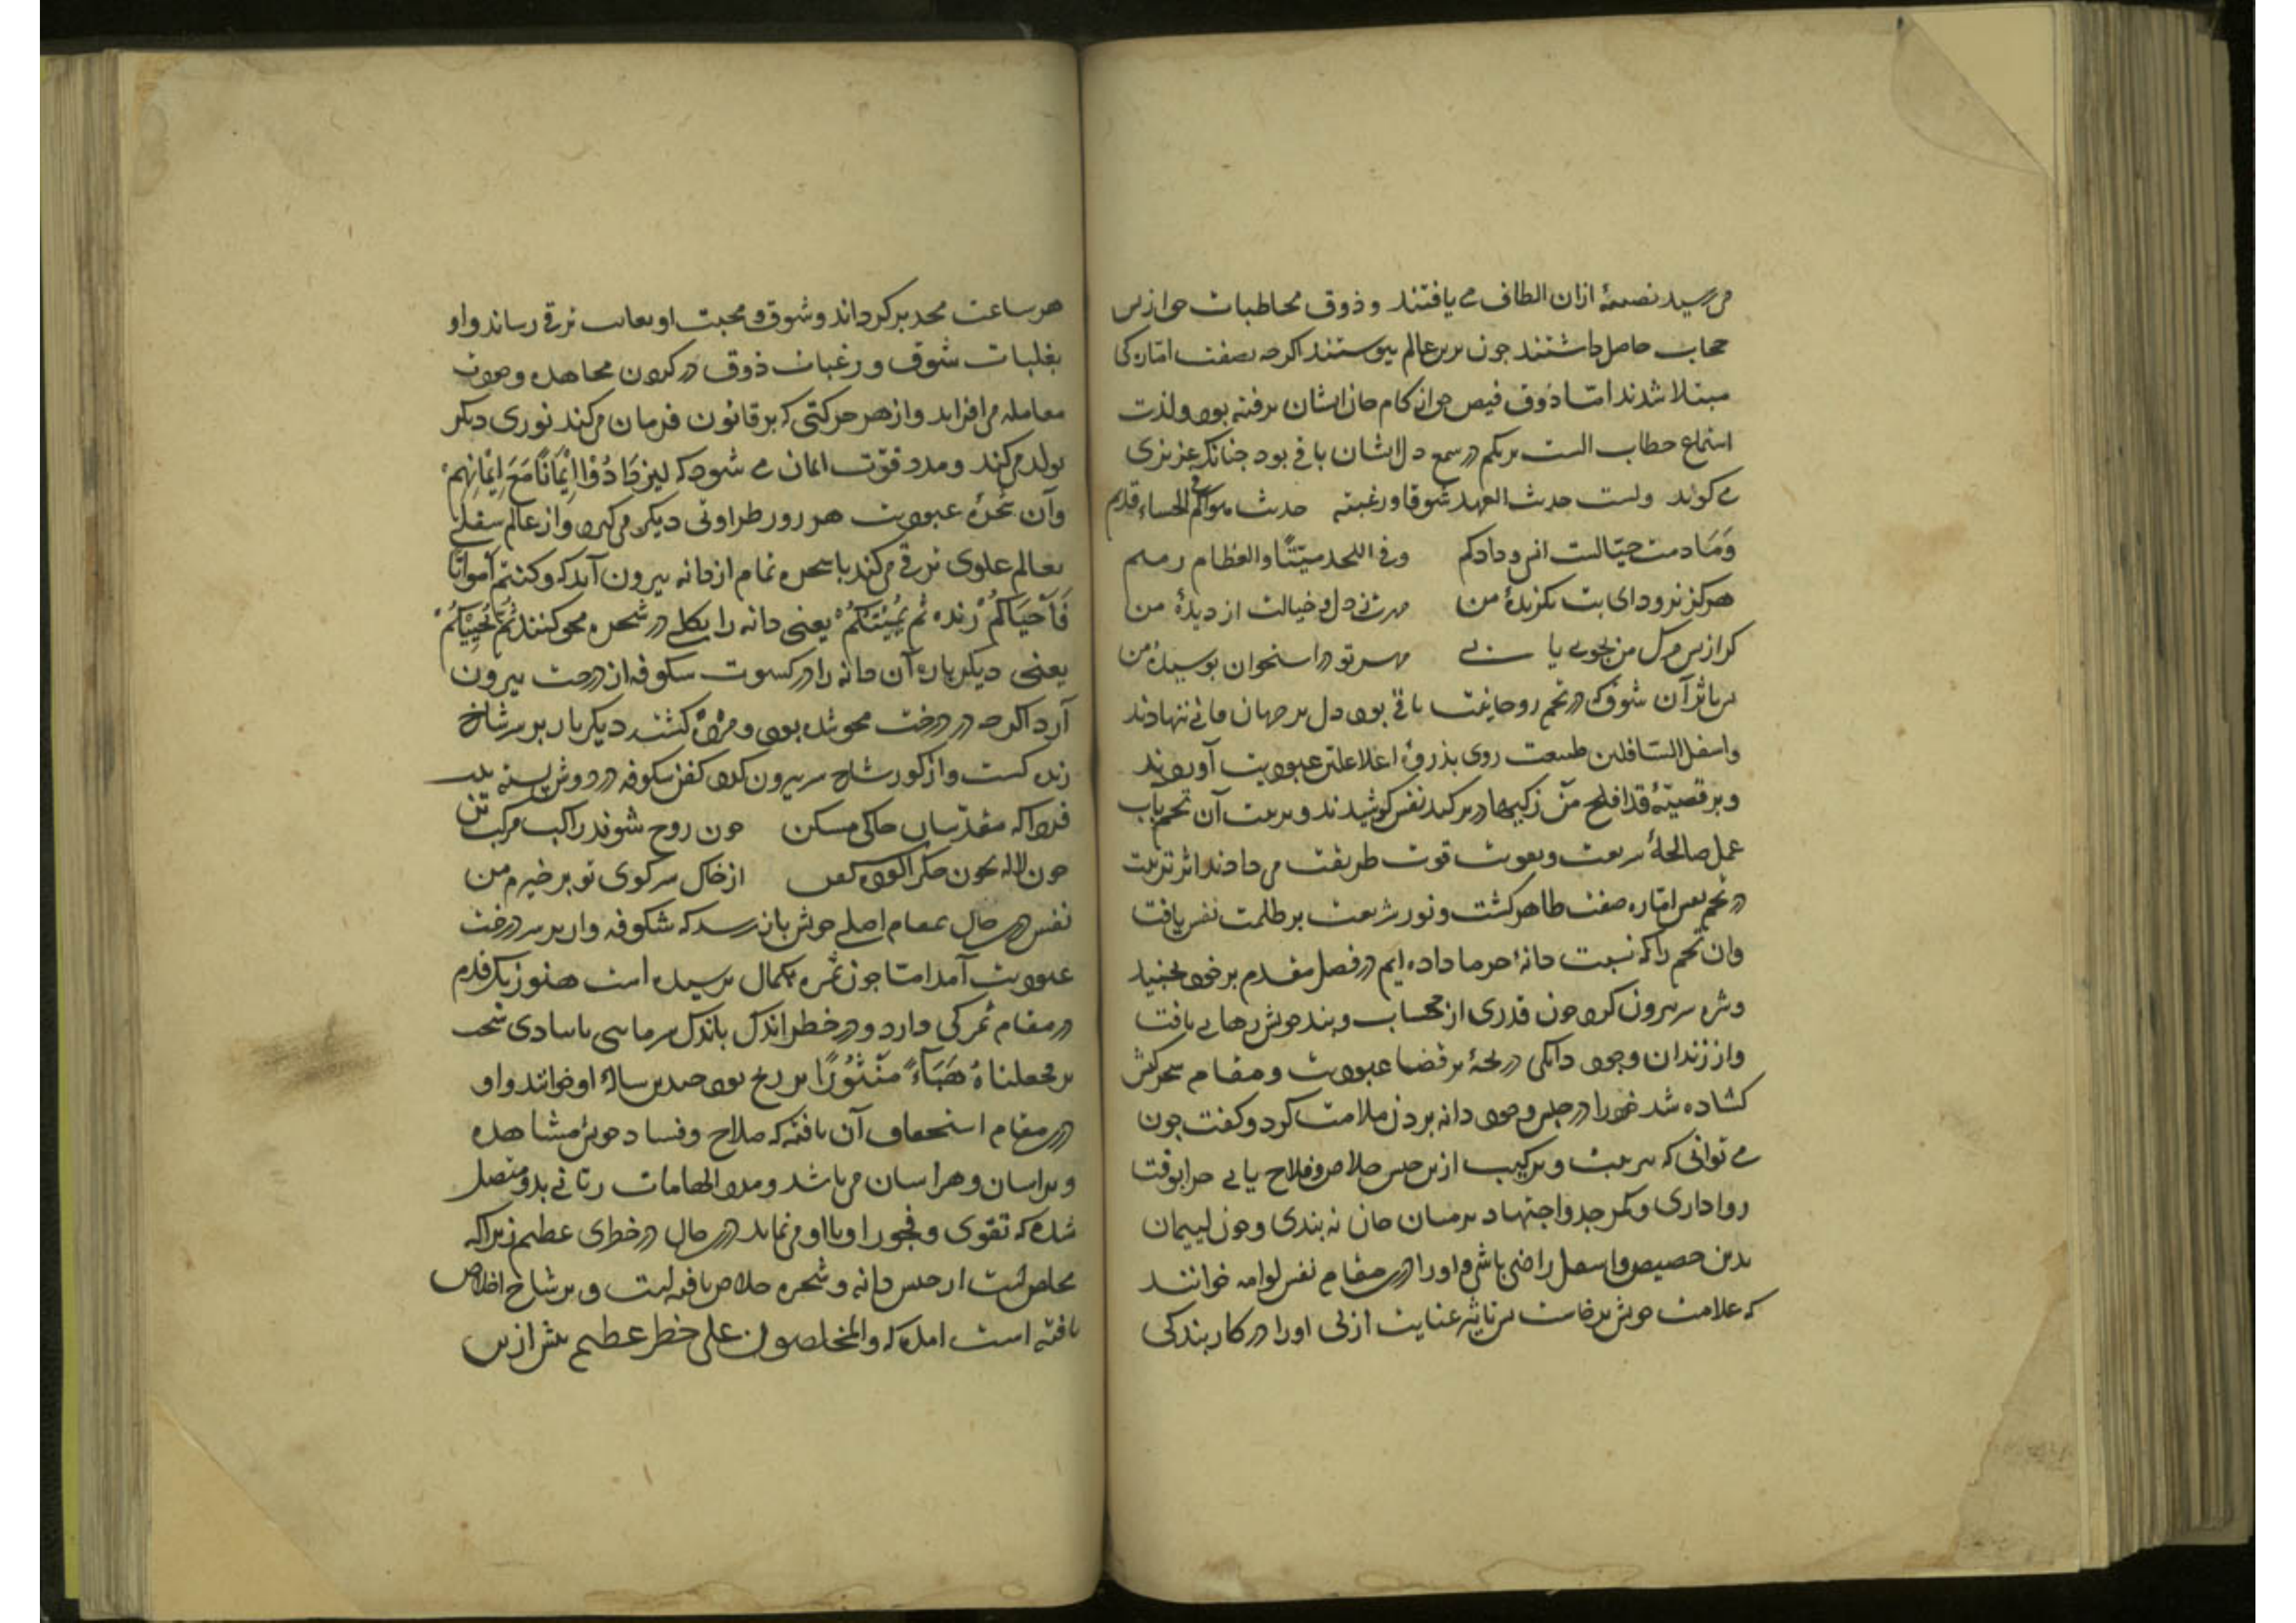 می رسید نصیبهٔ ازان الطاف می یافتند و ذوق مخاطبات حق از پس
حجاب حاصل داشتند چون بدین عالم پیوستند اکرچه بصفت امارکی
مبتلا شدند امّا ذوق فیض حق از کام جان ایشان نرفته بود و لذت
استماع خطاب الست بربکم در سمع دل ایشان باقی بود چنانک عزیزی
می کوید ولست حدیث العهد شوقا ورغبته حدیث هواکم فی الحساء قدیم
وَمَا دمت حیّا لست انس ودادکم وفی اللحد میّتًا والعظام رمیم
هرکز نرود ای بت بکزیدهٔ من مهرت ز دل و خیالت از دیدهٔ من
کر از پس مرک من بجویی یابی مهر تو در استخوان بوسیدهٔ من
بتاثیر آن شوق که در تخم روحانیت باقی بود دل بر جهان فانی ننهادند
واسفل السّافلین طبیعت روی بذروهٔ اعلا علیّن عبودیت آوردند
و بر قضیّهٔ قد افلح مَنْ زکیها در تزکیه نفس کوشیدند و تربیت آن تخم بآب
عمل صالحهٔ شریعت و بقوت طریقت می دادند اثر تربیت
در تخم نفس امّاره صفت ظاهر کشت و نور شریعت بر ظلمت نفس یافت
وان تخم را که نسبت دانهٔ خرما داده ایم در فصل مقدم بر خود بجنبید
و سر بیرون کرد چون قدری از حجاب و بند خویش رهایی یافت
و از زندان وجود دانکی دریچهٔ بر فضا عبودیت و مقام شجرکیش
کشاده شد خود را در حبس وجود دانه بردن ملامت کرد و کفت چون
می توانی که بتربیت و ترکیب ازین حبس خلاص و فلاح یابی چرا توقف
رواداری و کمر جد و اجتهاد بر میان جان نه بندی و چون لییمان
بدین حضیض و اسفل راضی باشی و او را درین مقام نفس لوامه خوانند
که علامت خویش برخاست بتاثیر عنایت ازلی او را در کار بندکی
هر ساعت مجدبر کرداند و شوق و محبت او بغایت ترقی رساند و او
بغلبات شوق و رغبات ذوق در کردن مجاهده و صوت
معامله می افزاید و از هر حرکتی که بر قانون فرمان می کند نوری دیکر
تولد می کند و مدد قوّت ایمان می شود که لیَزدَادُوْا اِیْمَانًا مَعَ اِیْمَانِهِمْ
و آن شجرهٔ عبودیت هر روز طراوتی دیکر می کیرد و از عالم سفلی
بعالم علوی ترقی می کند تا شجره تمام از دانه بیرون آید که وکنتم اَمواتًا
فَاَحْیَاکُمْ زنده ثم یُمِیْتُکُمْ یعنی دانه را بکلی در شجره محو کنند ثُمَّ یُحْیِیْکُمْ
یعنی دیکر باره آن دانه را در کسوت شکوفه از درخت بیرون
آرد اکرچه در درخت محو شده بود و مردهٔ کشته دیکر بار بر سر شاخ
زنده کشت و از کور شاخ سر بیرون کرد کفن شکوفه در دوش
فردا که مقدّسان خاکی مسکن چون روح شوند راکب مرکب تن
چون لاله بخون جکر آلوده کفن از خاک سر کوی تو برخیزم من
نفس درین حال بمقام اصلی خویش باز رسد که شکوفه وار بر سر درخت
عبودیت آمد امّا چون ثمره بکمال نرسیده است هنوز یک قدم
در مقام ثمرکی دارد و در خطر اندک بادک سرمایی یا بادی سخت
بر فجعلناهُ هَبَآءً مَنْثُوْرًا بر رخ بود صد رسالهٔ او خوانند و او
در مقام استحقاق آن یافته که صلاح و فساد خویش مشاهده
و براسان و هراسان می باشد و مدد الهامات ربّانی بدو متصل
شده که تقوی و فجور او با او می نماید درین حال در خطری عظیم زیرا که
مخلص است از حبس دانه و شجره خلاص یافته است و بر شاخ اخلاص
یافته است امله که والمخلصون علی خطر عظیم بیش ازین